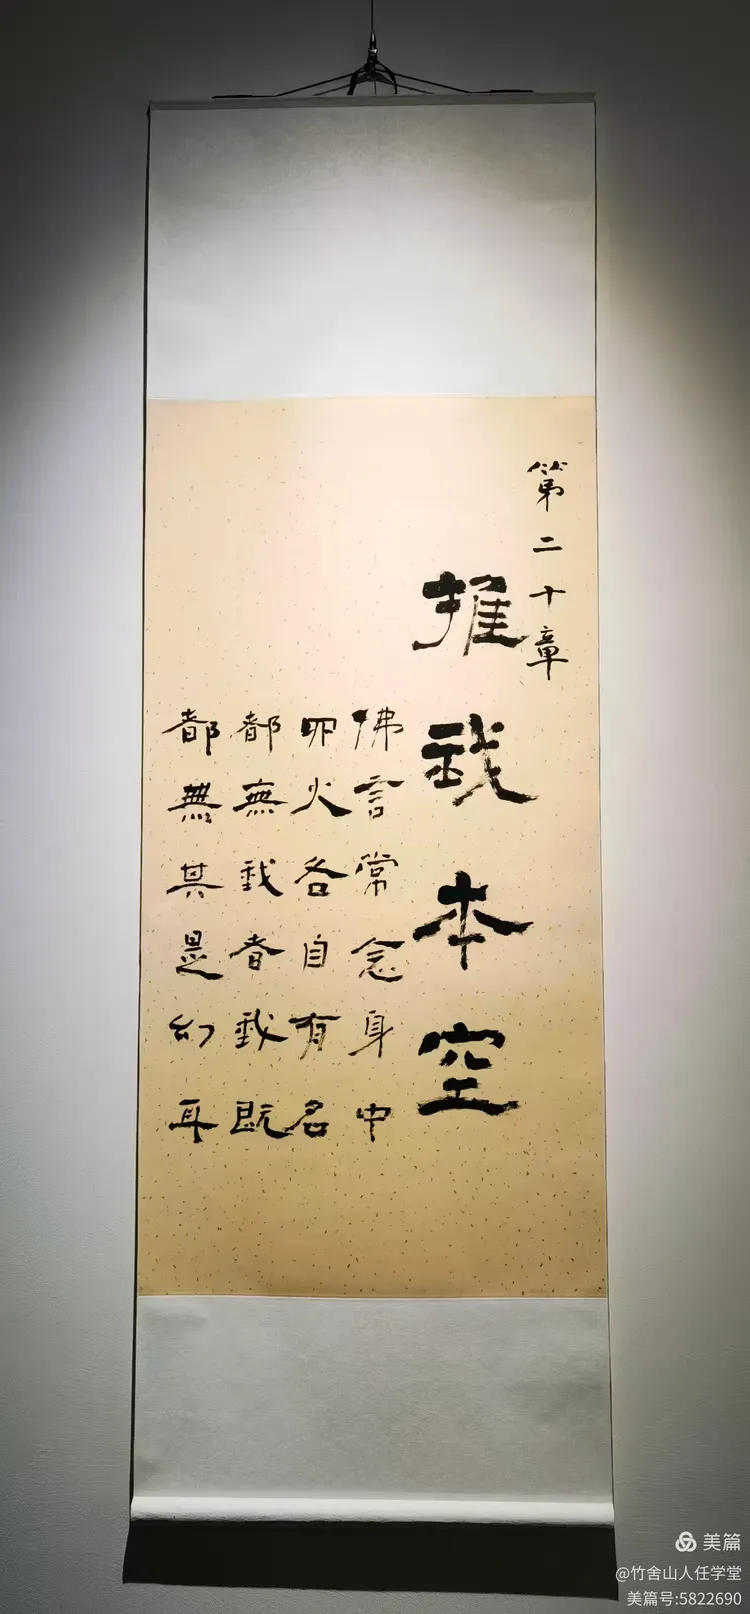 第二十章
推我本空
佛言常念身中
四火各自有名
都無我者我既
都無其是幻耳
美篇
@竹舍山人任学堂
美篇号:5822690